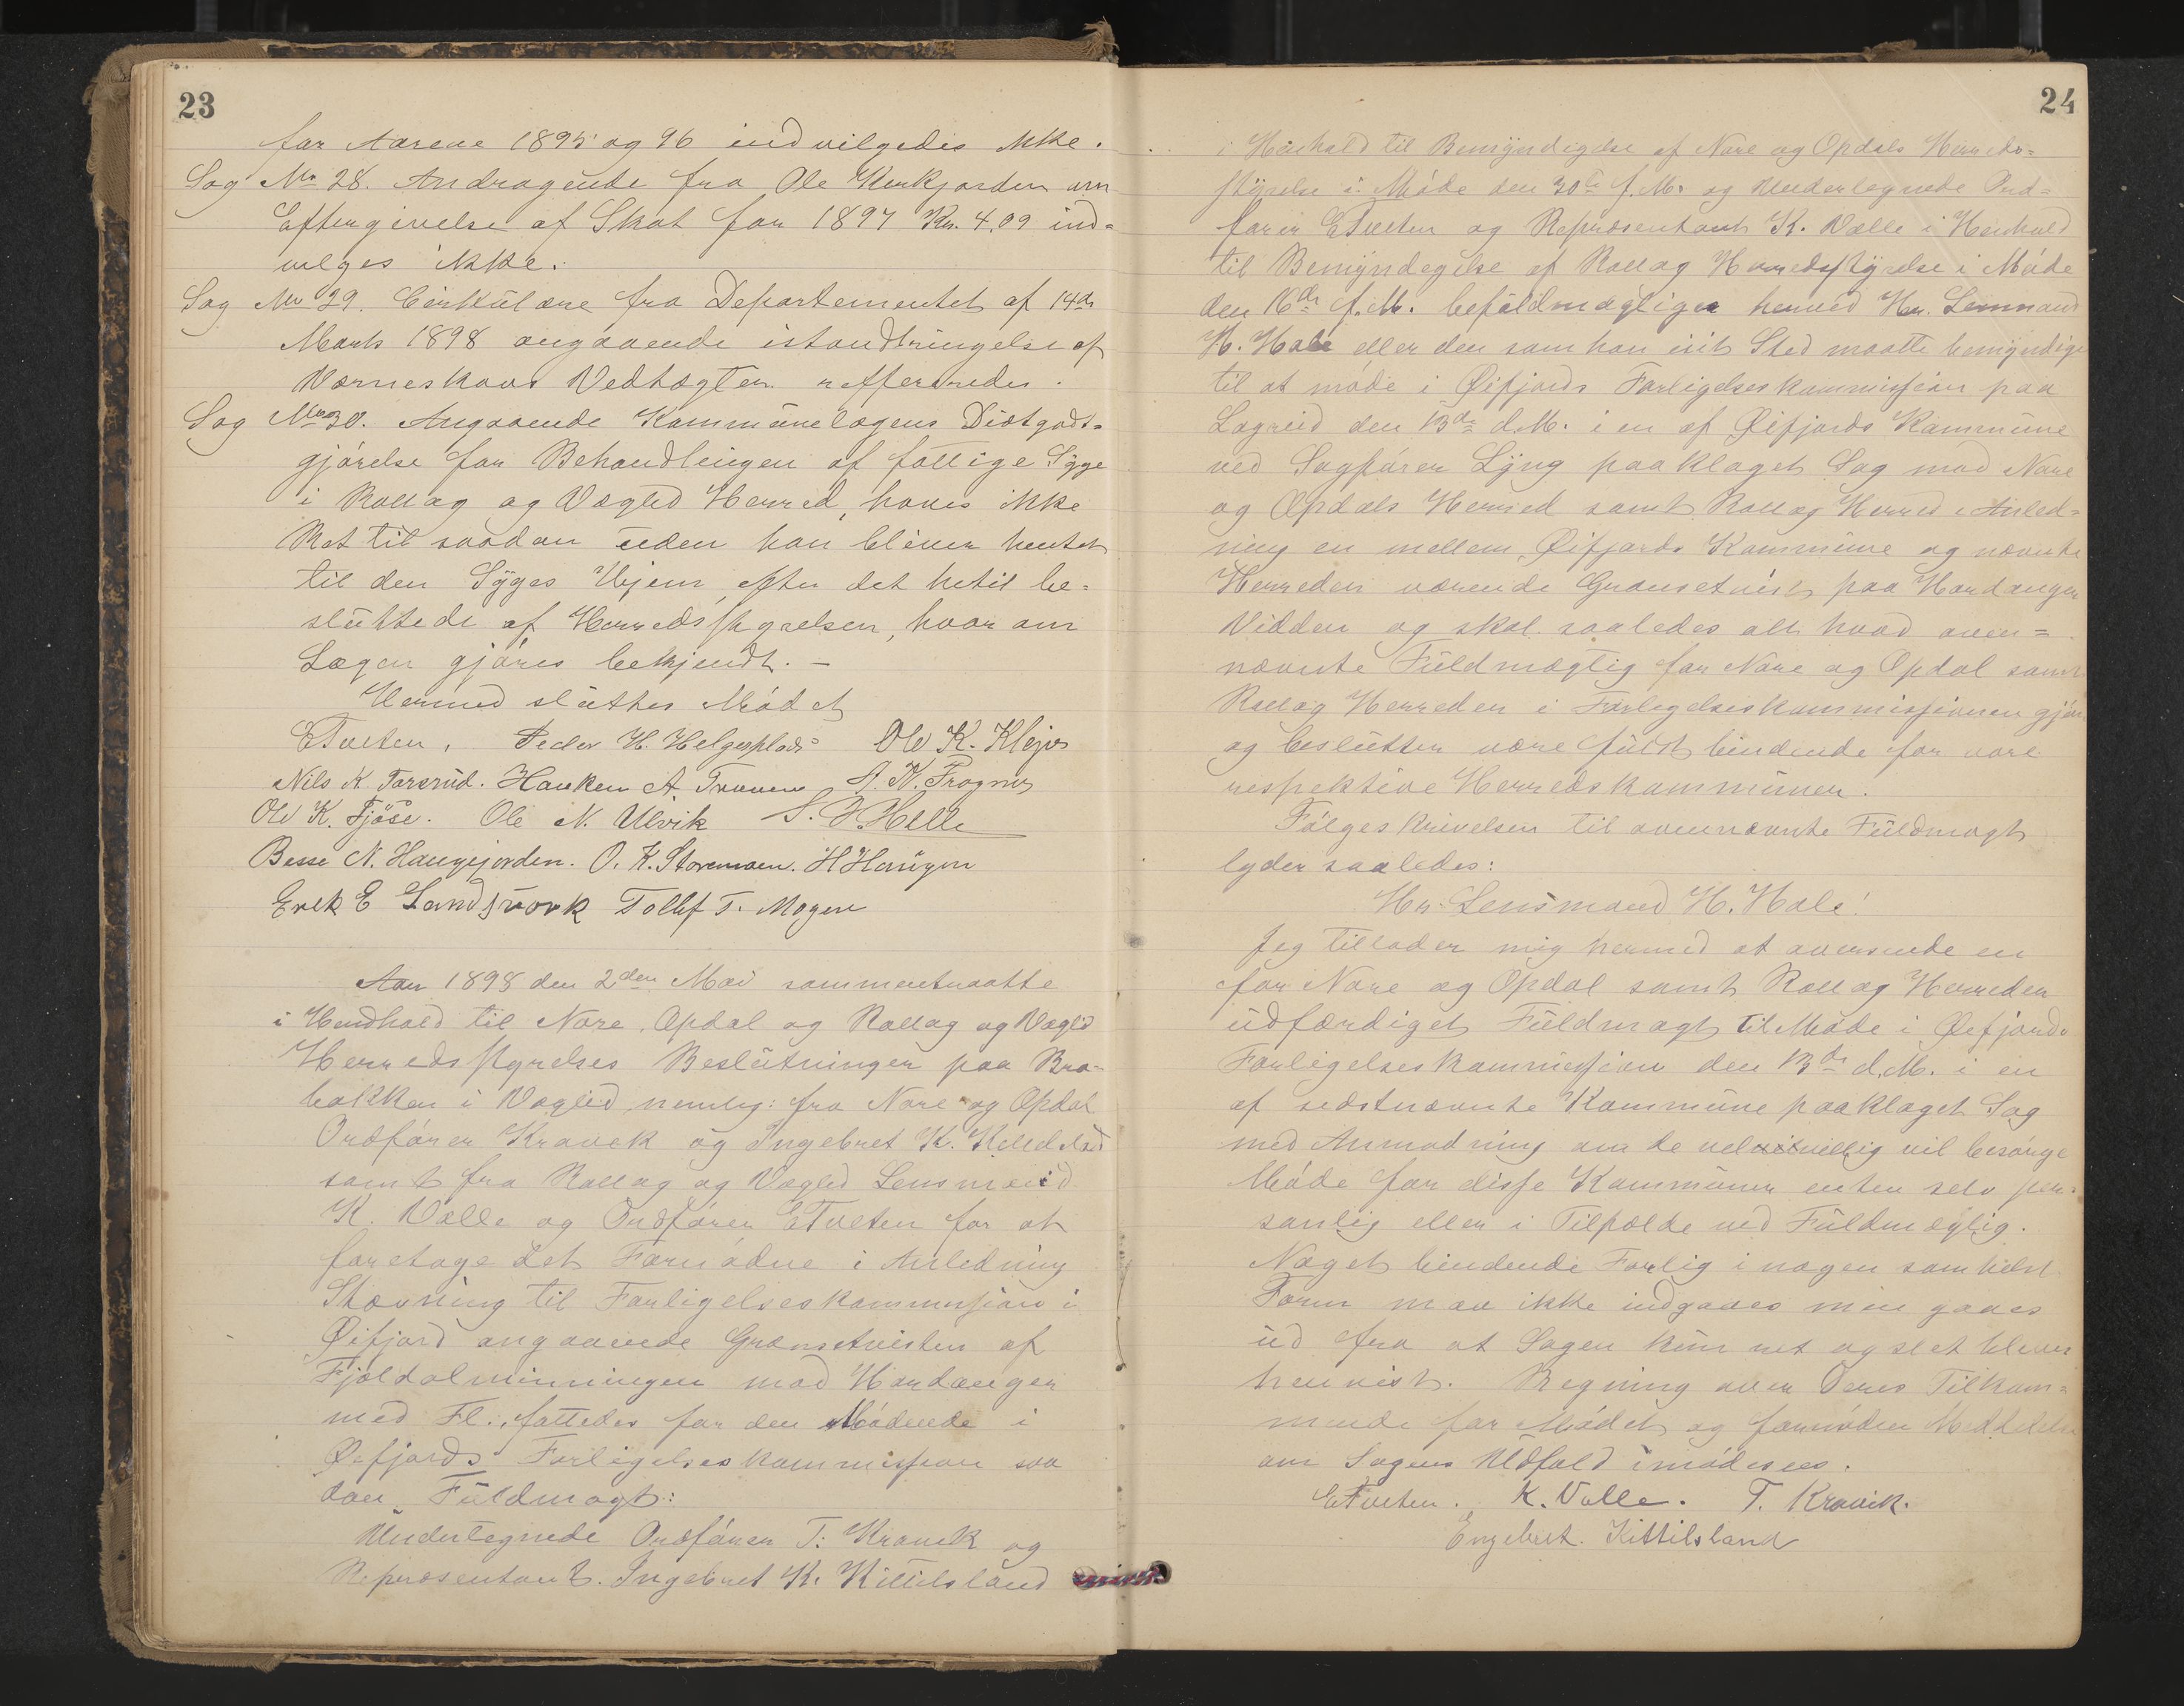 23
for Aarene 1895 og 96 indvilgedes ikke.
Sag No 28. Andragende fra Ole Kirkjorden om
Eftergivelse af Skat for 1897 Kr. 4,09 ind=
vilges ikke.
Sag No 29. Cirkulære fra Departementet af 14de
Marts 1898 angaaende istandbringelse af
Værneskovs Vedtægter refferredes.
Sag No 30. Angaaende Kommunelægens Diætgodt=
gjørelse for Behandlingen af fattige Syge
i Rollag og Væglid Herred, haves ikke
Ret til saadan uden han bliver hentet
til den Syges Hjem, efter det hertil be=
sluttede af Herredsstyrelsen, hvor om
Lægen gjøres bekjendt. –
Hermed sluttes Mødet
ETveten, Peder H. Helgeplads Ole K. Klejvs
Nils K Torsrud. Haaken A Traaen A. N. Frogner
Ole K. Fjöse. Ole N. Ulvik S. J. Helle
Besse N. Haugejorden. O. K. Storemoen. H Haugen
Erek E Landsverk Tollef T. Mogen
Aar 1898 den 2den Mai sammentraatte
i Hendhold til Nore, Opdal og Rollag og Væglid
Herredsstyrelses Beslutninger paa Bro-
bakken i Væglid, nemlig: fra Nore og Opdal
Ordfører Kravek og Ingebret K. Kittelsland
samt fra Rollag og Væglid Lensmand
K. Vælle og Ordfører ETveten for at
foretage det Fornødne i Anledning
Stævning til Forligelseskommission i
Øifjord angaaende Grænsetvisten af
Fjeldalminningen mod Hardanger
med Fl., fattedes for den Mødende i
Øifjords Forligelseskommission saa
dan Fuldmagt:
Undertegnede Ordfører T. Kravek og
Representant Ingebret K. Kittilsland
24
i Henhold til Bemyndigelse af Nore og Opdals Herreds=
styrelse i Møde den 30te f.M. og Undertegnede Ord=
fører ETveten og Representant K. Vælle i Henhold
til Bemyndegelse af Rollag Herredsstyrelse i Møde
den 16de f.M. befuldmægtiger herved Hr. Lensmand
H. Hale eller den som han i sit Sted maatte bemyndige
til at møde i Øifjords Forligelseskommission paa
Lægreid den 13de d.M. i en af Øifjords Kommune
ved Sagfører Lyng paaklaget Sag mod Nore
og Opdals Herred samt Rollag Herred i Anled=
ning en mellem Øifjords Kommune og nævnte
Herreder værende Grænsetvist paa Hardanger
Vidden og skal saaledes alt hvad oven=
nævnte Fuldmægtig for Nore og Opdal samt
Rollag Herreder i Forlegelseskommissionen gjør
og beslutter være fuldt bindende for vore
respektive Herredskommuner.
Følgeskrivelsen til ovennævnte Fuldmagt
lyder saaledes:
Hr. Lensmand H. Hale!
Jeg tillader mig hermed at oversende en
for Nore og Opdal samt Rollag Herreder
udfærdiget Fuldmagt til Møde i Øifjords
Forligelseskommission den 13de d.M. i en
af sidstnævnte Kommune paaklaget Sag
med Anmodning om De velvillig vil besørge
Møde for disse Kommuner enten selv per-
sonlig eller i Tilfælde ved Fuldmægtig.
Noget bindende Forlig i nogen somhelst
Form maa ikke indgaaes men gaaes
ud fra at Sagen kun ret og slet bliver
henvist. Regning over Deres Tilkom=
mende for Mødet og fornøden Meddelelse
om Sagens Udfald imødesees.
ETveten. K. Välle. T. Kravik.
Engebret. Kittilsland